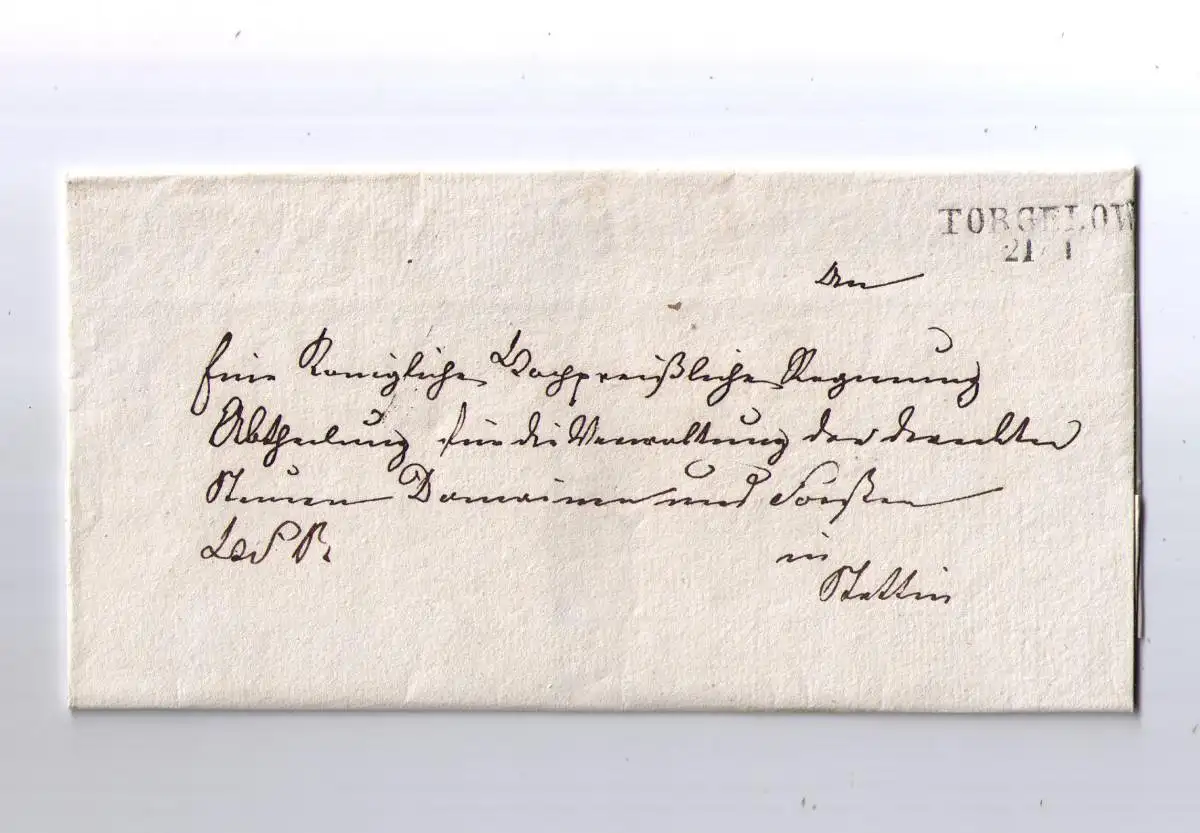 TORGELOW
21 1
An
Eine Königliche Hochpreißliche Regierung
Abtheilung für die Verwaltung der directen
Steuern Domainen und Forsten
in
Stettin